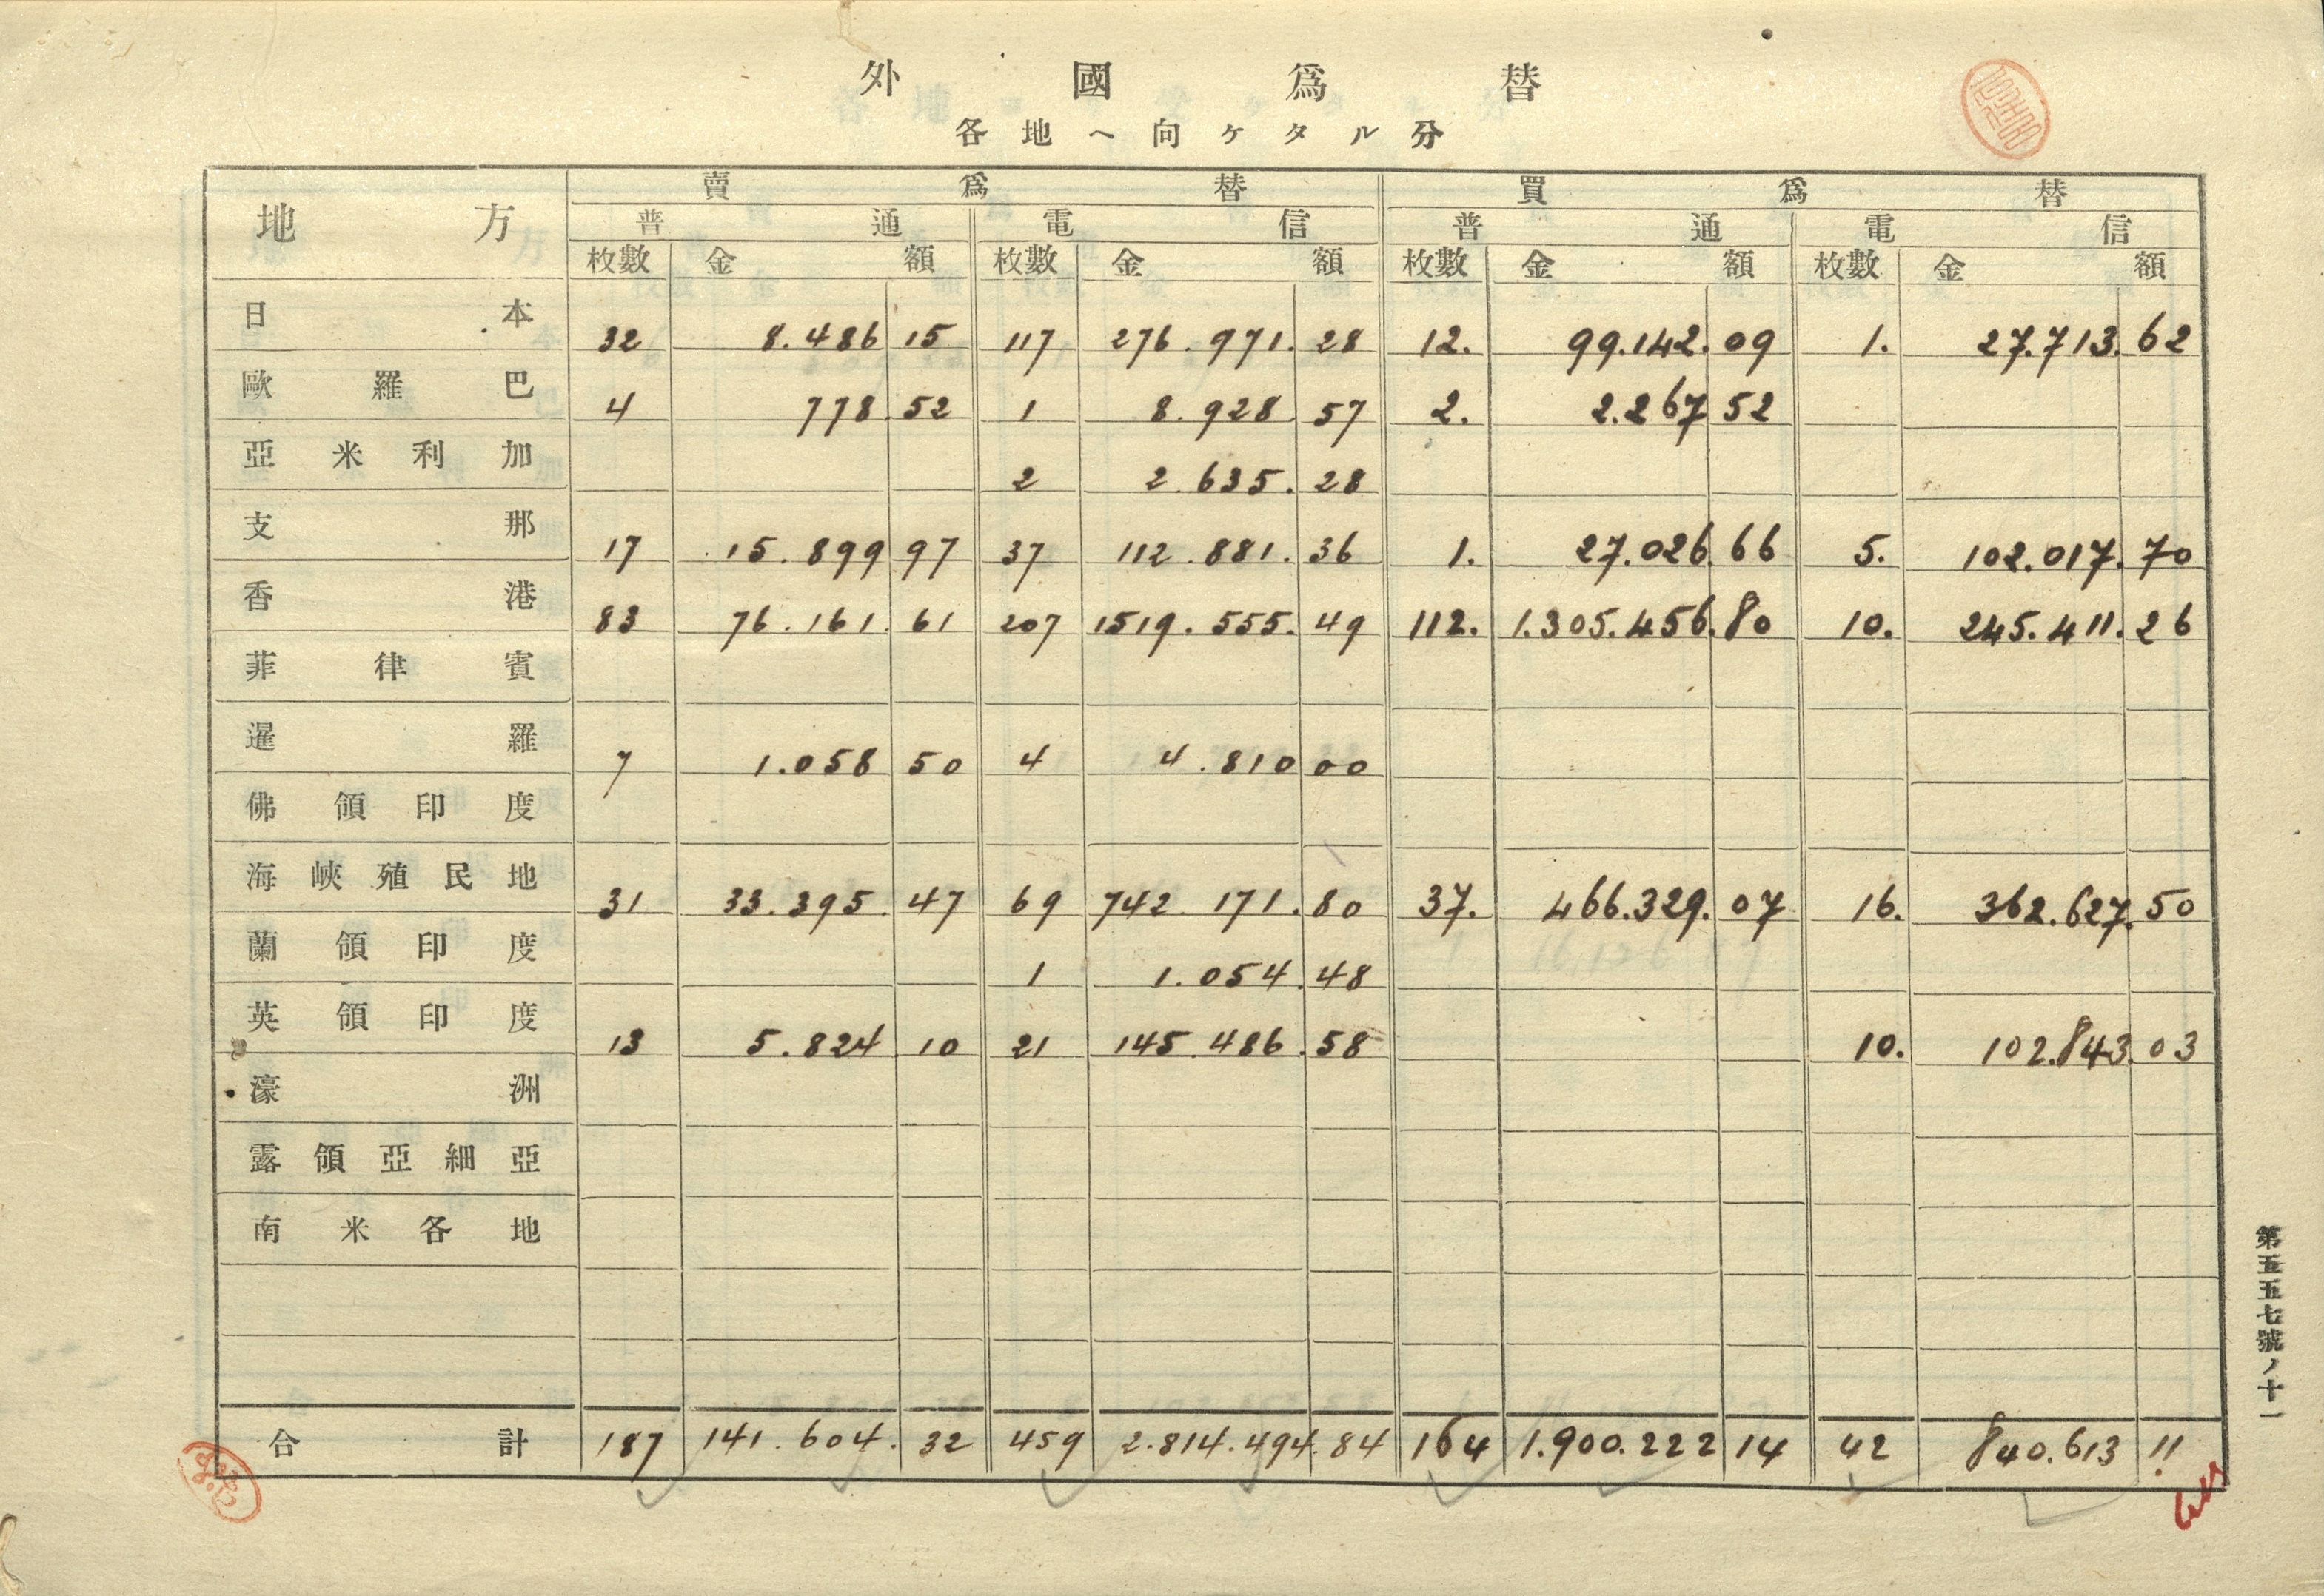 外國爲替
各地ヘ向ケタル分
地方 賣爲替 買爲替
普通 電信 普通 電信
枚數 金額 枚數 金額 枚數 金額 枚數 金額
日本 32 8.486 15 117 276.971.28 12. 99.142.09 1. 27.713.62
歐羅巴 4 778.52 1 8.928.57 2. 2.267 52
亞米利加 2 2.635.28
支那 17 15.899 97 37 112.881.36 1. 27.026.66 5. 102.017.70
香港 83 76.161.61 207 1519.555.49 112. 1.305.456.80 10. 245.411.26
菲律賓
暹羅 7 1.058 50 4 4.810 00
佛領印度
海峽殖民地 31 33.395.47 69 742.171.80 37. 466.329.07 16. 362.627.50
蘭領印度 1 1.054.48
英領印度 13 5.824 10 21 145.486.58 10. 102.843.03
濠洲
露領亞細亞
南米各地
合計 187 141.604.32 459 2.814.494.84 164 1.900.222 14 42 840.613 11
第五五七號ノ十一